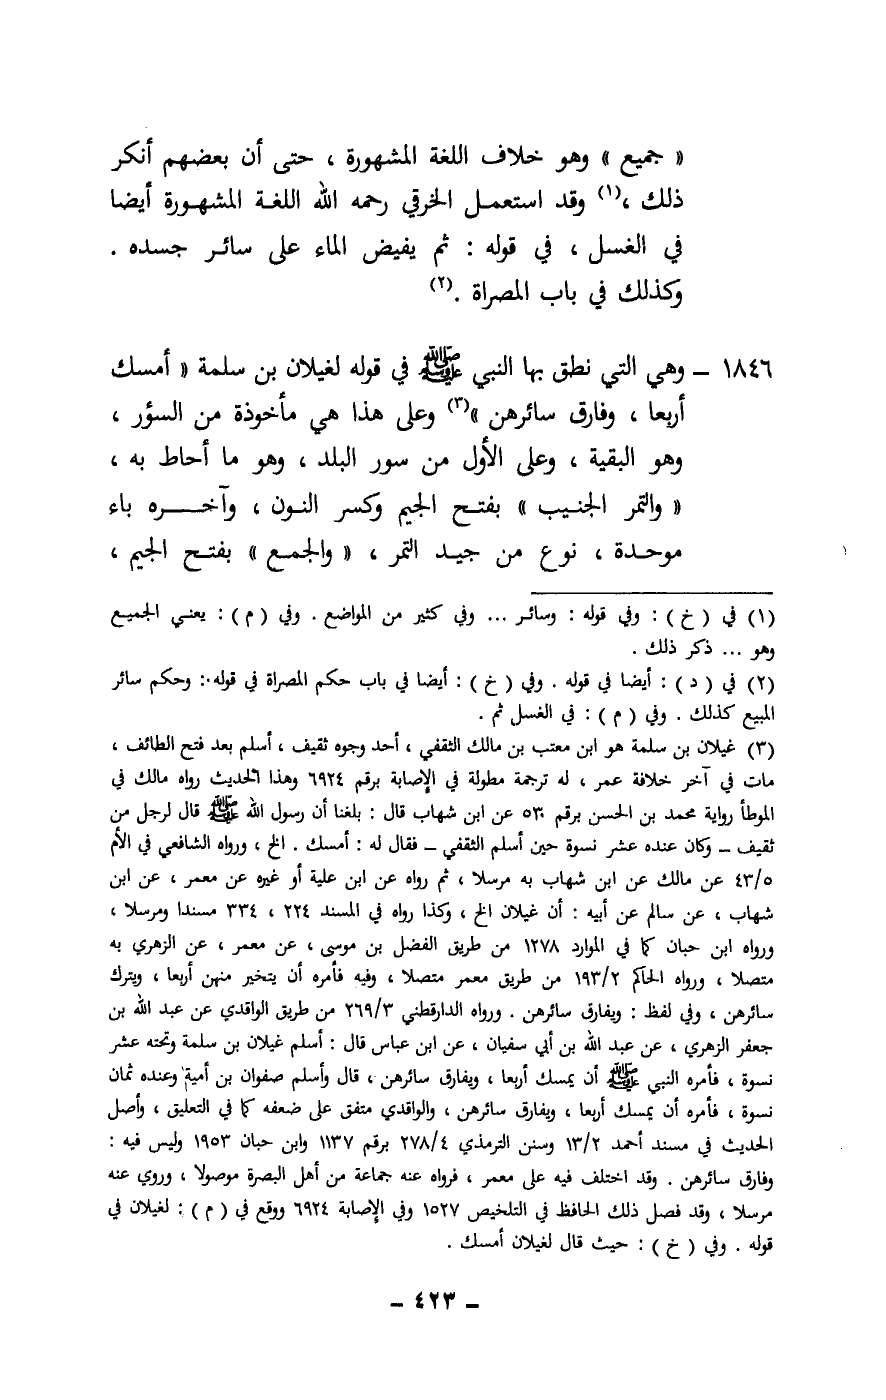 « جميع » وهو خلاف اللغة المشهورة ، حتى أن بعضهم أنكر
ذلك ،(١) وقد استعمل الخرقي رحمه الله اللغة المشهورة أيضا
في الغسل ، في قوله : ثم يفيض الماء على سائر جسده .
وكذلك في باب المصراة .(٢)
١٨٤٦ – وهي التي نطق بها النبي ﷺ في قوله لغيلان بن سلمة « أمسك
أربعا ، وفارق سائرهن »(٣) وعلى هذا هي مأخوذة من السؤر ،
وهو البقية ، وعلى الأول من سور البلد ، وهو ما أحاط به ،
« والتمر الجنيب » بفتح الجيم وكسر النون ، وآخره باء
موحدة ، نوع من جيد التمر ، « والجمع » بفتح الجيم ،
(١) في ( خ ) : وفي قوله : وسائر ... وفي كثير من المواضع . وفي ( م ) : يعني الجميع
وهو ... ذكر ذلك .
(٢) في ( د ) : أيضا في قوله . وفي ( خ ) : أيضا في باب حكم المصراة في قوله : وحكم سائر
المبيع كذلك . وفي ( م ) : في الغسل ثم .
(٣) غيلان بن سلمة هو ابن معتب بن مالك الثقفي ، أحد وجوه ثقيف ، أسلم بعد فتح الطائف ،
مات في آخر خلافة عمر ، له ترجمة مطولة في الإصابة برقم ٦٩٢٤ وهذا الحديث رواه مالك في
الموطأ رواية محمد بن الحسن برقم ٥٣٠ عن ابن شهاب قال : بلغنا أن رسول الله ﷺ قال لرجل من
ثقيف – وكان عنده عشر نسوة حين أسلم الثقفي – فقال له : أمسك . الخ ، ورواه الشافعي في الأم
٤٣/٥ عن مالك عن ابن شهاب به مرسلا ، ثم رواه عن ابن علية أو غيره عن معمر ، عن ابن
شهاب ، عن سالم عن أبيه : أن غيلان الخ ، وكذا رواه في المسند ٢٢٤ ، ٣٣٤ مسندا ومرسلا ،
ورواه ابن حبان كما في الموارد ١٢٧٨ من طريق الفضل بن موسى ، عن معمر ، عن الزهري به
متصلا ، ورواه الحاكم ١٩٣/٢ من طريق معمر متصلا ، وفيه فأمره أن يتخير منهن أربعا ، ويترك
سائرهن ، وفي لفظ : ويفارق سائرهن . ورواه الدارقطني ٢٦٩/٣ من طريق الواقدي عن عبد الله بن
جعفر الزهري ، عن عبد الله بن أبي سفيان ، عن ابن عباس قال : أسلم غيلان بن سلمة وتحته عشر
نسوة ، فأمره النبي ﷺ أن يمسك أربعا ، ويفارق سائرهن ، قال وأسلم صفوان بن أمية وعنده ثمان
نسوة ، فأمره أن يمسك أربعا ، ويفارق سائرهن ، والواقدي متفق على ضعفه كما في التعليق ، وأصل
الحديث في مسند أحمد ١٣/٢ وسنن الترمذي ٢٧٨/٤ برقم ١١٣٧ وابن حبان ١٩٥٣ وليس فيه :
وفارق سائرهن . وقد اختلف فيه على معمر ، فرواه عنه جماعة من أهل البصرة موصولا ، وروي عنه
مرسلا ، وقد فصل ذلك الحافظ في التلخيص ١٥٢٧ وفي الإصابة ٦٩٢٤ ووقع في ( م ) : لغيلان في
قوله . وفي ( خ ) : حيث قال لغيلان أمسك .
– ٤٢٣ –